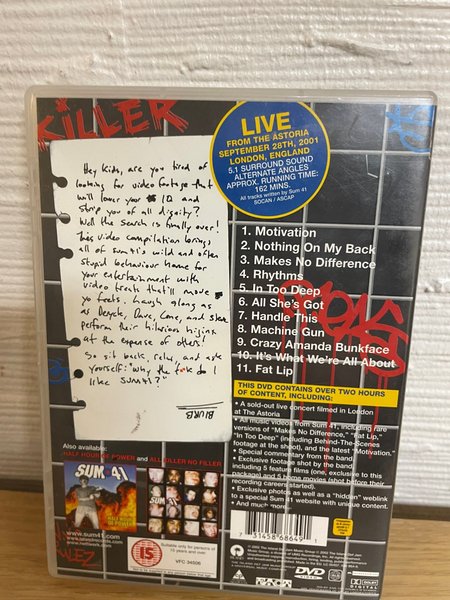 KiLLER
Hey kids, are you tired of
looking for video footage that
will lower your IQ and
strip you of all dignity?
Well the search is finally over!
This video compilation brings
all of sum41's wild and often
stupid behaviour home for
your entertainment with
video treats that'll move
yo freets. Laugh along as
as Deryck, Dave, Cone, and
perform their hilarious hijinx
at the expense of others!
So sit back, relax, and ask
yourself: "why the f*ck do I
like SUM41?"
BLURB
LIVE
FROM THE ASTORIA
SEPTEMBER 28TH, 2001
LONDON, ENGLAND
5.1 SURROUND SOUND
ALTERNATE ANGLES
APPROX. RUNNING TIME:
162 MINS.
All tracks written by Sum 41
SOCAN / ASCAP
1. Motivation
2. Nothing On My Back
3. Makes No Difference
4. Rhythms
5. In Too Deep
6. All She's Got
7. Handle This
8. Machine Gun
9. Crazy Amanda Bunkface
10. It's What We're All About
11. Fat Lip
THIS DVD CONTAINS OVER TWO HOURS
OF CONTENT, INCLUDING:
• A sold-out live concert filmed in London
at The Astoria
• All music videos from Sum 41, including rare
versions of "Makes No Difference," "Fat Lip,"
"In Too Deep" (including Behind-The-Scenes
footage at the shoot), and the latest "Motivation."
• Special commentary from the band
• Exclusive footage shot by the band
including 5 feature films (one, exclusive to this
package) and 5 home movies (shot before their
signing)
• Exclusive photos as well as a "hidden" weblink
to a special Sum 41 website with unique content.
• And much more
Also available:
HALF HOUR OF POWER and ALL KILLER NO FILLER
SUM 41
HALF HOUR
OF POWER
SUM 41
www.sum41.com
www.islandrecords.com
www.nettwerk.com
15
Suitable only for persons of
15 years and over
VFC 34506
7 31458 68649 1
DVD
VIDEO
DOLBY
DIGITAL